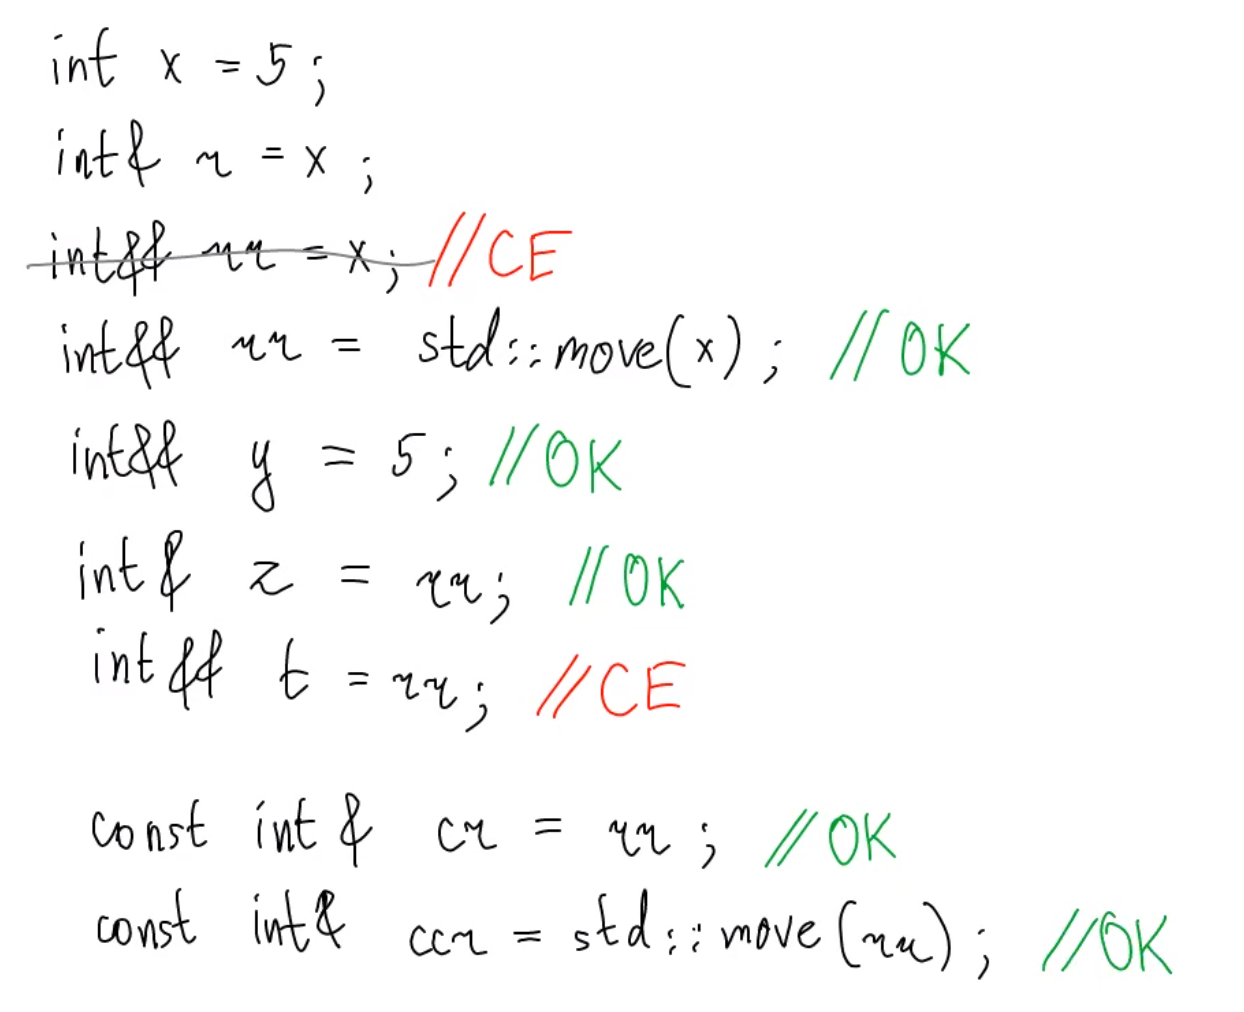 int x = 5;
int& r = x;
int&& rr = x; //CE
int&& rr = std::move(x); //OK
int&& y = 5; //OK
int& z = rr; //OK
int&& t = rr; //CE
const int& cr = rr; //OK
const int& ccr = std::move(rr); //OK